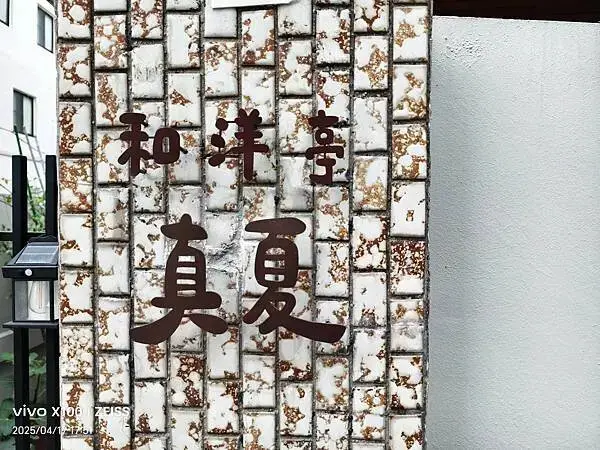 和洋亭
真夏
vivo X100 | ZEISS
2025/04/17 17:51